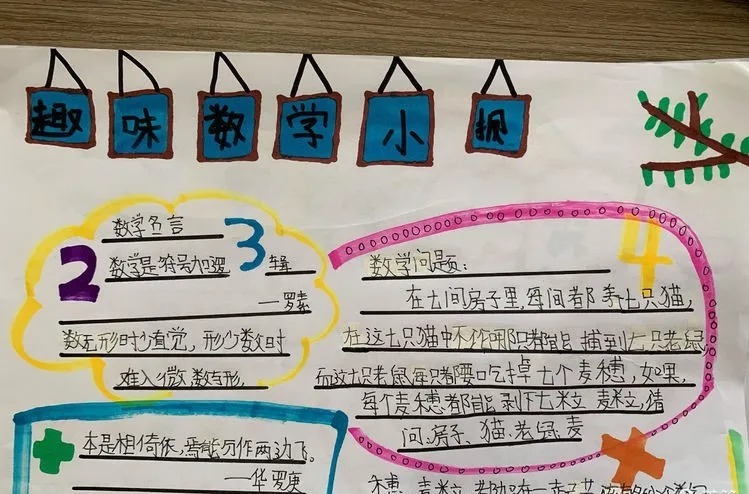 趣味数学小报
数学名言
2 3
数学是符号加逻
辑
—罗素
数无形时少直觉，形少数时
难入微，数与形，
本是相倚依，焉能分作两边飞。
—华罗庚
4
数学问题：
在七间房子里，每间都养七只猫，
在这七只猫中不论哪只都能捕到七只老鼠
而这七只老鼠每只都要吃掉七个麦穗，如果，
每个麦穗都能剥下七粒麦粒，请
问：房子、猫、老鼠、麦
穗、麦粒